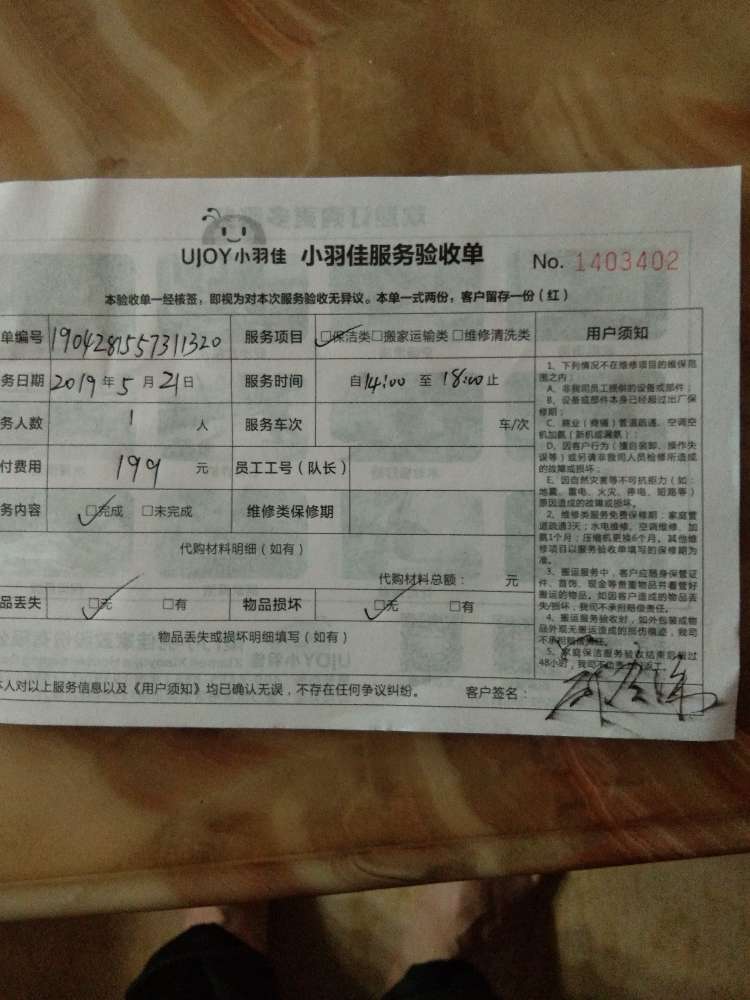 UJOY小羽佳 小羽佳服务验收单 No. 1403402
本验收单一经核签，即视为对本次服务验收无异议。本单一式两份，客户留存一份（红）
单编号 1904281557311320 服务项目 □保洁类□搬家运输类□维修清洗类 用户须知
务日期 2019年5月21日 服务时间 自14:00至18:00止
务人数 1 人 服务车次 车/次
付费用 199 元 员工工号（队长）
务内容 □完成 □未完成 维修类保修期
代购材料明细（如有）
代购材料总额： 元
品丢失 □无 □有 物品损坏 □无 □有
物品丢失或损坏明细填写（如有）
本人对以上服务信息以及《用户须知》均已确认无误，不存在任何争议纠纷。 客户签名：
1、下列情况不在维修项目的维保范
围之内：
A、非我司员工提供的设备或部件；
B、设备或部件本身已经超过出厂保
修期；
C、商业（商铺）管道疏通、空调空
机加氨（新机或漏氨）；
D、因客户行为（擅自装卸、操作失
误等）或另请非我司人员检修所造成
的故障或损坏；
E、因自然灾害等不可抗拒力（如：
地震、雷电、火灾、停电、短路等）
原因造成的故障或损坏。
2、维修类服务免费保修期：家庭管
道疏通3天；水电维修、空调维修、加
氨1个月；压缩机更换6个月。其他维
修项目以服务验收单填写的保修期为
准。
3、搬运服务中，客户应随身保管证
件、首饰、现金等贵重物品并看管好
搬运的物品。如因客户造成的物品丢
失/损坏，我司不承担赔偿责任。
4、搬运服务验收时，如外包装或物
品外观无搬运造成的损伤痕迹，我司
不承担赔偿责任。
5、家庭保洁服务验收结束后超过
48小时，我司不